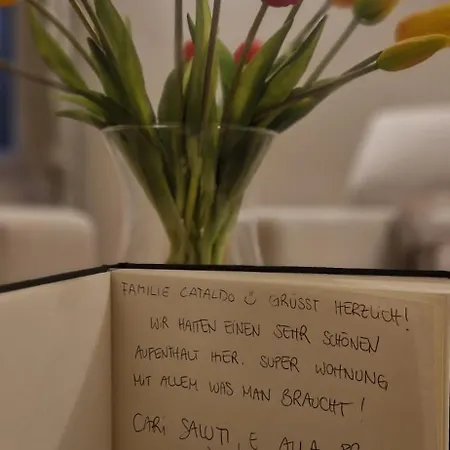 FAMILIE CATALDO ☺ GRÜSST HERZLICH!
WIR HATTEN EINEN SEHR SCHÖNEN
AUFENTHALT HIER. SUPER WOHNUNG
MIT ALLEM WAS MAN BRAUCHT!
CARI SALUTI, E ALLA